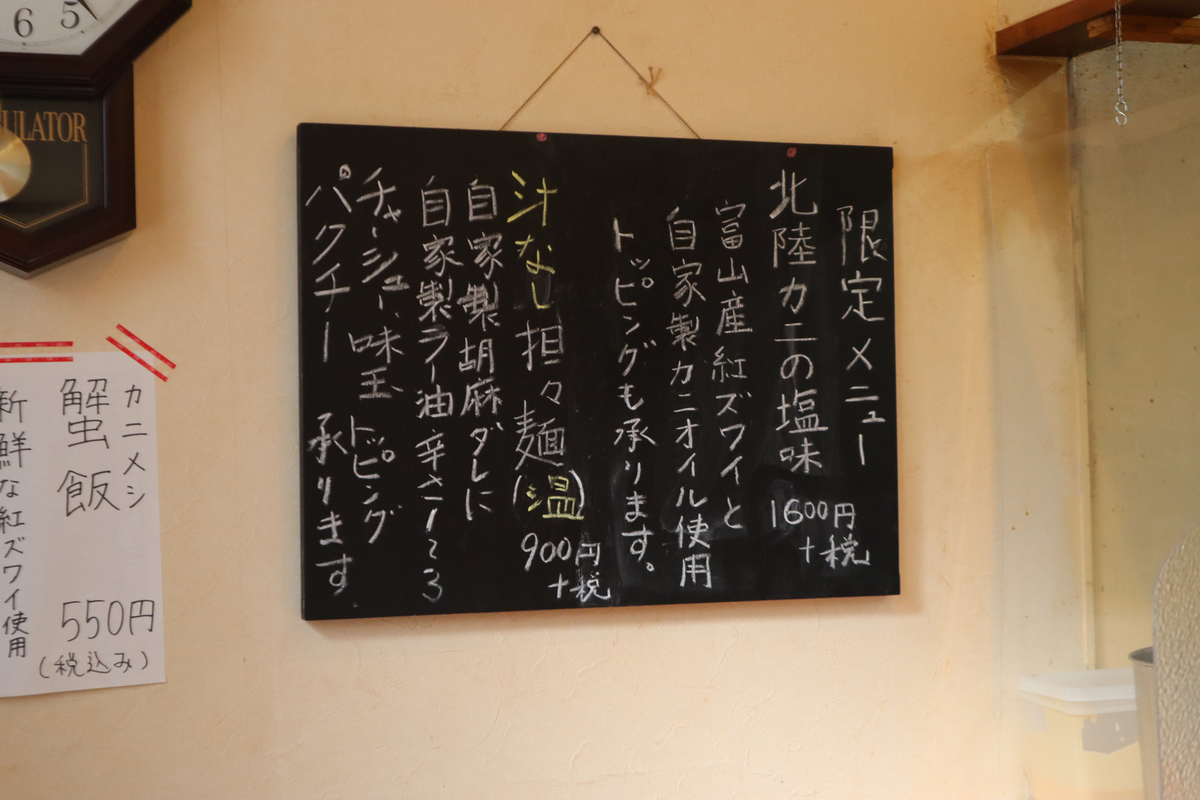 限定メニュー
北陸カニの塩味
1600円
+税
富山産紅ズワイと
自家製カニオイル使用
トッピングも承ります。
汁なし担々麺(温)
900円
+税
自家製胡麻ダレに
自家製ラー油 辛さ1~3
チャーシュー、味玉 トッピング
パクチー 承ります.
カニメシ
蟹飯
550円
(税込み)
新鮮な紅ズワイ使用
6 5
ULATOR